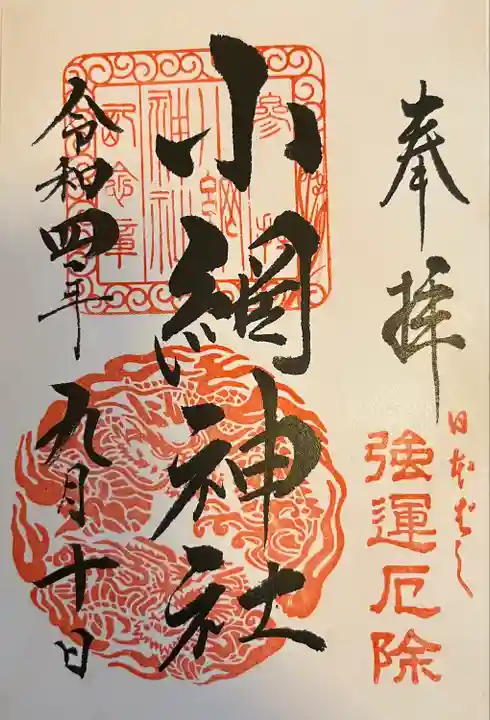 奉拝
日本ばし
強運厄除
参拝
小網神社
記念章
小網神社
令和四年九月十日